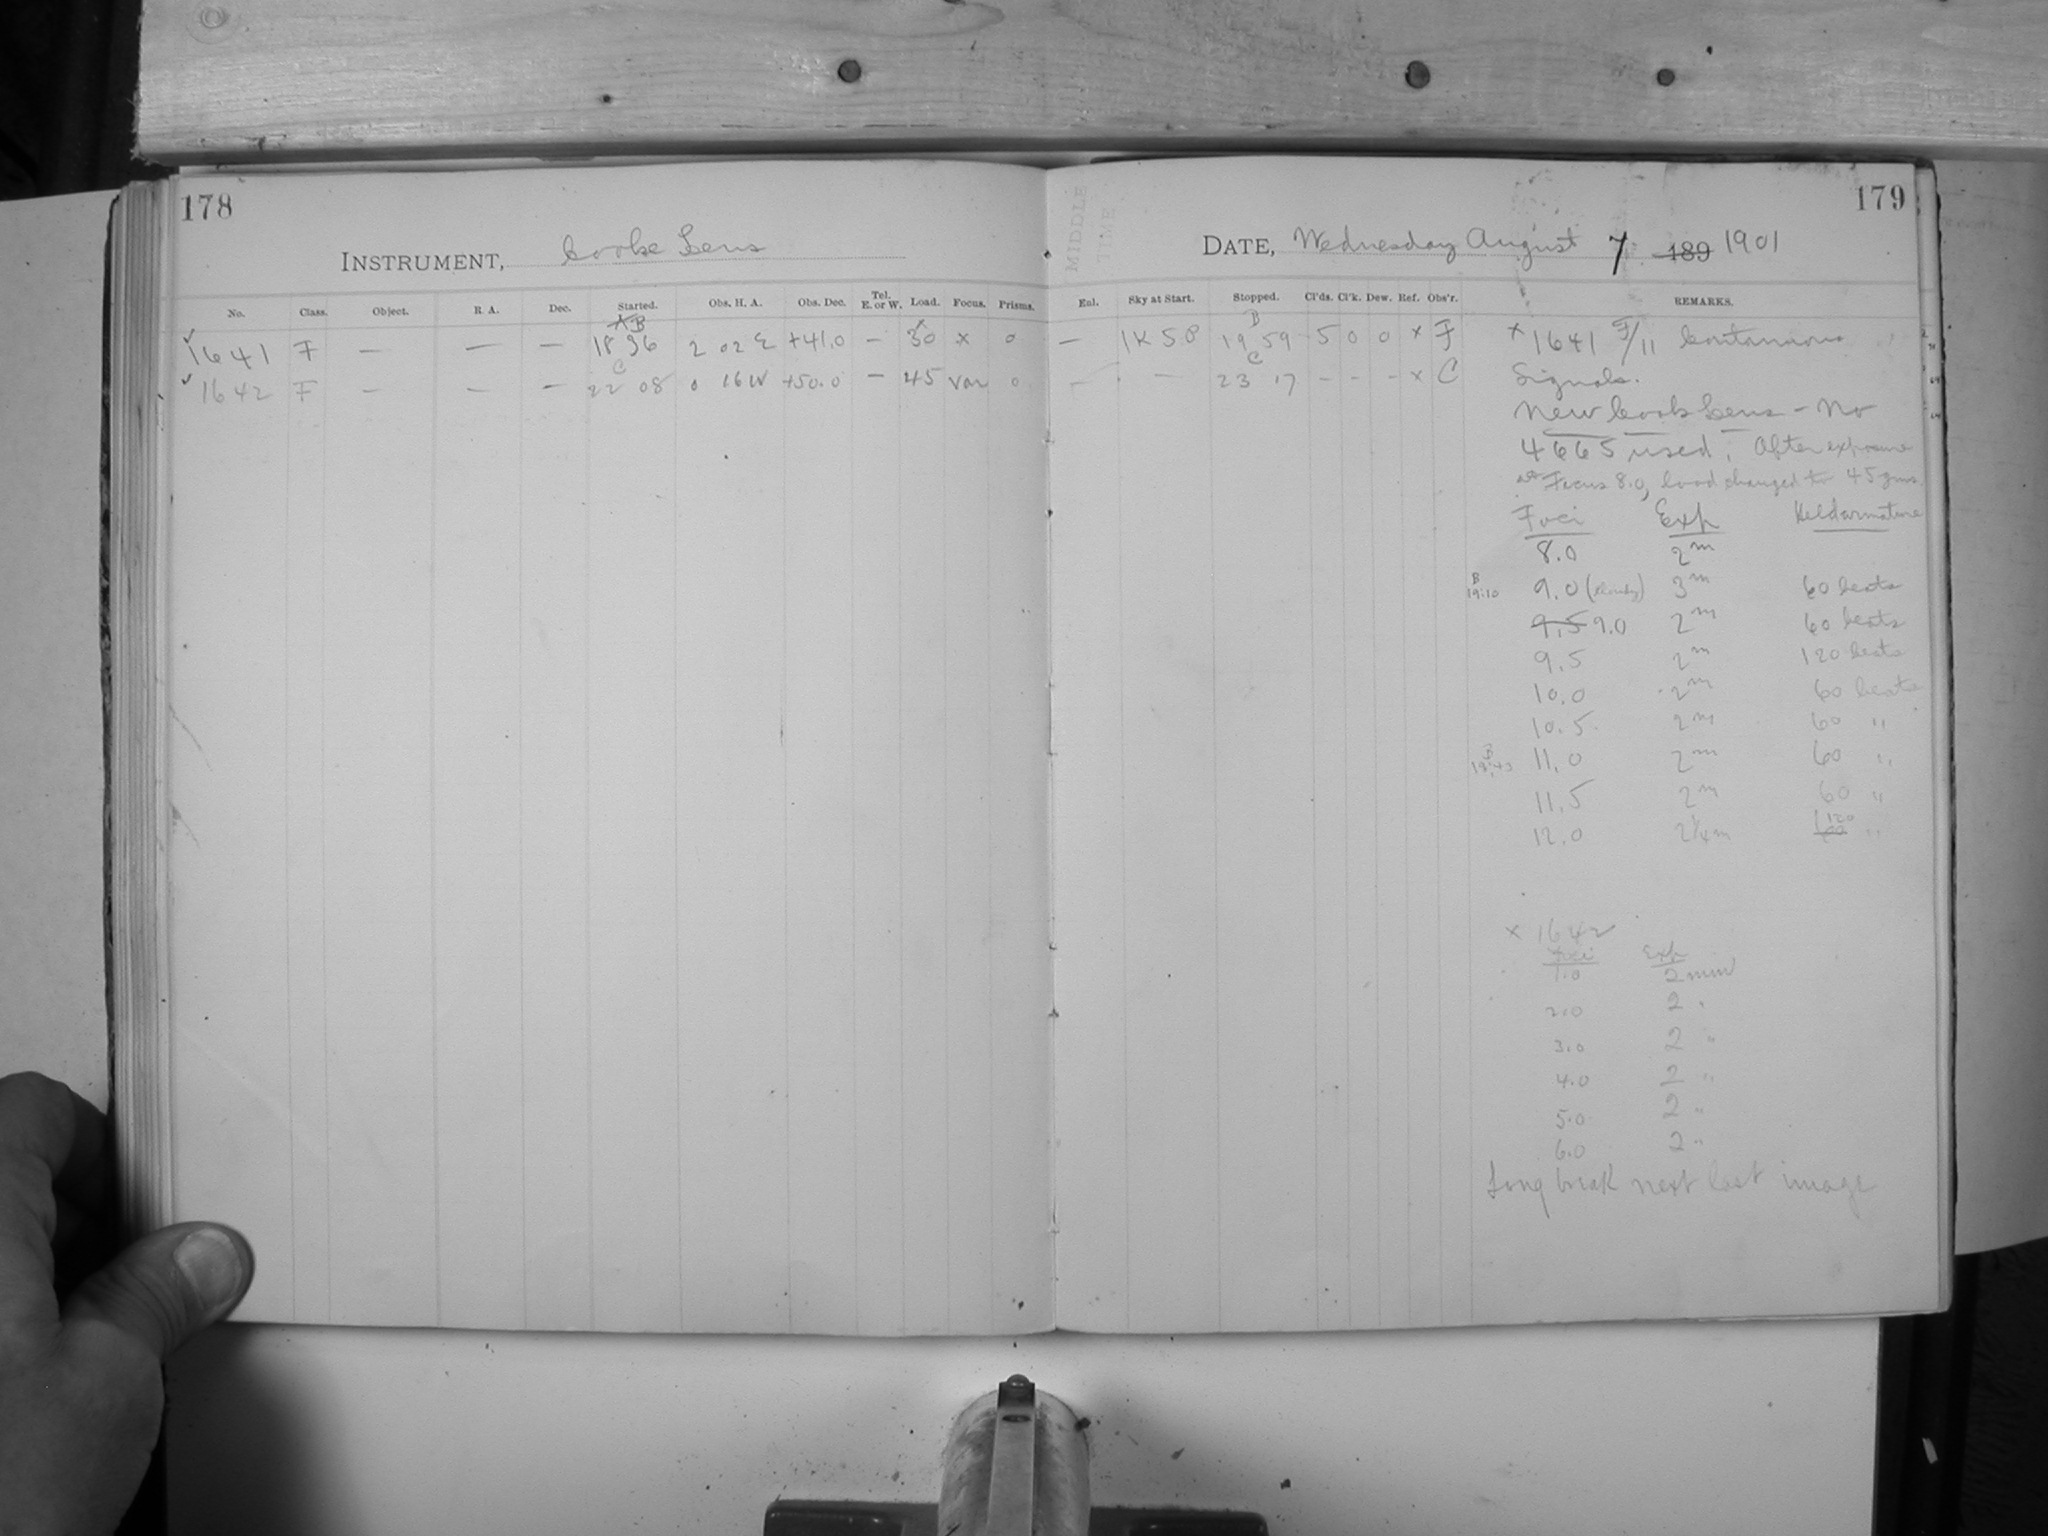 178
INSTRUMENT, Cooke Lens
No. Class. Object. R. A. Dec. Started. Obs. H. A. Obs. Dec. Tel. E. or W. Load. Focus. Prisms.
B
1641 F — — — 18 36 2 02 E +41.0 — 30 x 0
C
1642 F — — — 22 08 0 16 W +50.0 — 45 Var 0
MIDDLE
TIME
179
DATE, Wednesday August 7 189 1901
Enl. Sky at Start. Stopped. Cl'ds. Cl'k. Dew. Ref. Obs'r. REMARKS.
B
— 19 59 5 0 0 x F x 1641 F/11 Continuous
C
— — 23 17 - - - x C Signals.
New Cooke Lens - No
4665 used. After exposure
at Focus 8.0, load changed to 45 gms.
Foci Exp Held armature
8.0 2m
B
19:10 9.0 (cloudy) 3m 60 beats
9.5 9.0 2m 60 beats
9.5 2m 120 beats
10.0 2m 60 beats
10.5 2m 60 "
B
11.0 2m 60 "
11.5 2m 60 "
12.0 2¼m 120 "
x 1642
Foci Exp
1.0 2 min
2.0 2 "
3.0 2 "
4.0 2 "
5.0 2 "
6.0 2 "
Long break next last image